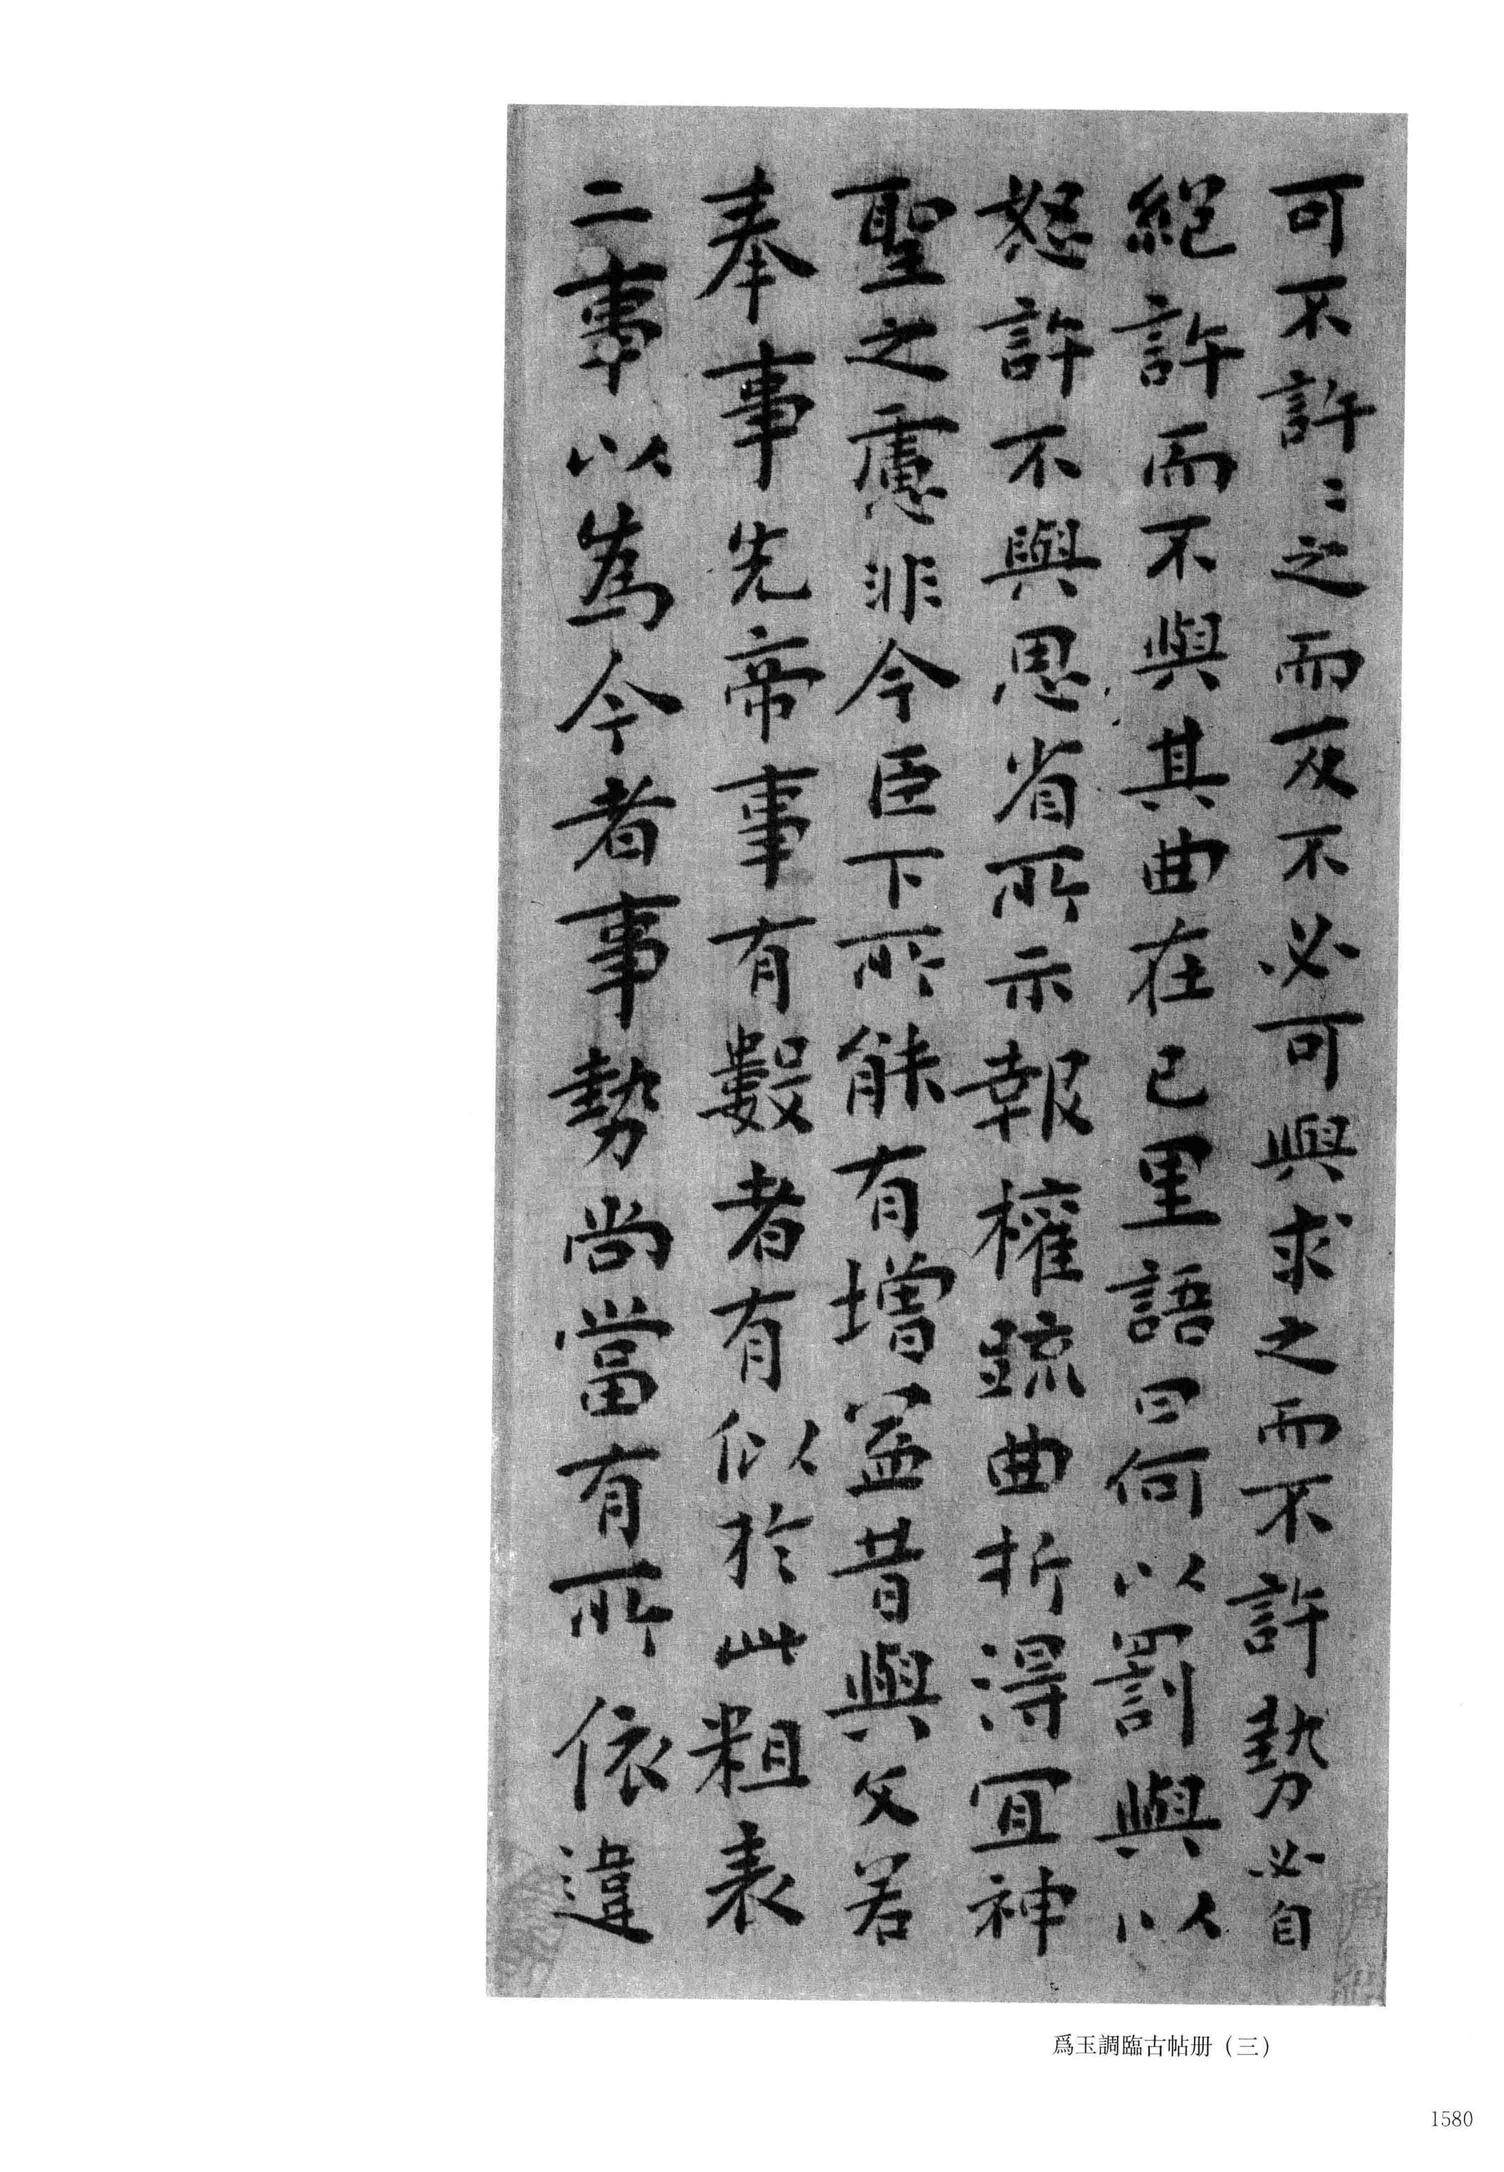 可不許〻之而反不必可與求之而不許勢必自
絕許而不與其曲在己里語曰何以罰與以
怒許不與思省所示報權疏曲折得宜神
聖之慮非今臣下所能有增益昔與文若
奉事先帝事有數者有似於此粗表
二事以為今者事勢尚當有所依違
爲玉調臨古帖册（三）
1580